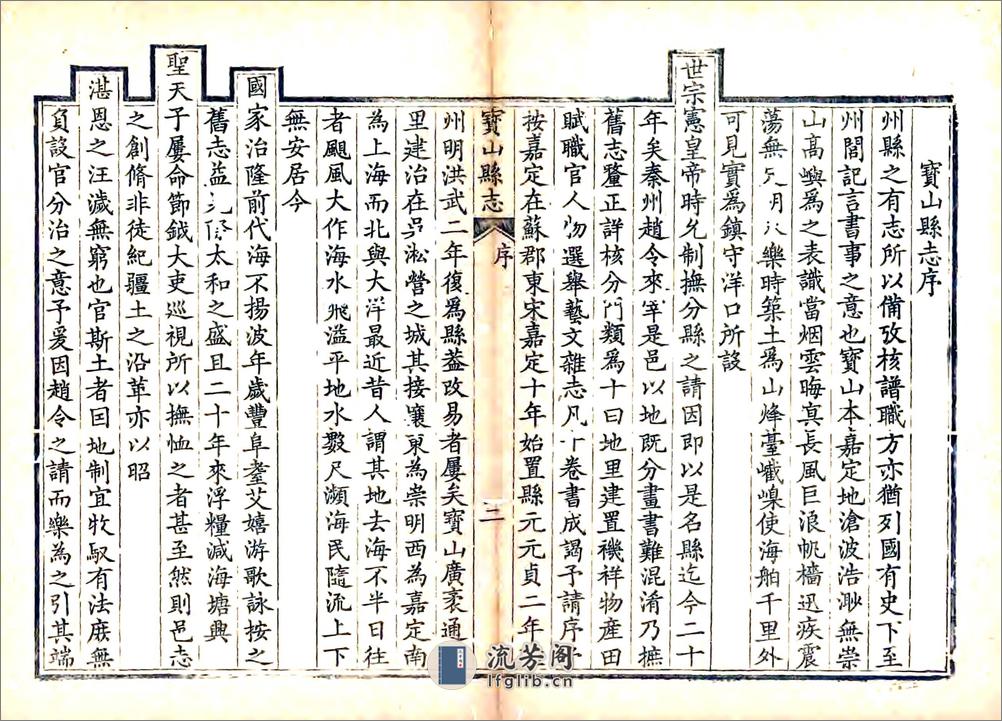 寶山縣志序
州縣之有志所以備攷核譜職方亦猶列國有史下至
州閭記言書事之意也寶山本嘉定地滄波浩渺無崇
山高嶼為之表識當烟雲晦冥長風巨浪帆檣迅疾震
蕩無 明 樂時築土為山烽臺巀嵲使海舶千里外
可見實為鎮守洋口所設
世宗憲皇帝時允制撫分縣之請因即以是名縣迄今二十
年矣秦州趙令來宰是邑以地既分畫書難混淆乃摭
舊志釐正詳核分門類為十曰地里建置禨祥物產田
賦職官人物選舉藝文雜志凡十卷書成謁予請序予
按嘉定在蘇郡東宋嘉定十年始置縣元元貞二年升
寶山縣志
序
二
州明洪武二年復為縣葢改易者屢矣寶山廣袤通
里建治在吳淞營之城其接壤東為崇明西為嘉定南
為上海而北與大洋最近昔人謂其地去海不半日往
者颶風大作海水飛溢平地水數尺瀕海民隨流上下
無安居今
國家治隆前代海不揚波年歲豐阜耋艾嬉游歌詠按之
舊志益 太和之盛且二十年來浮糧減海塘興
聖天子屢命節鉞大吏巡視所以撫恤之者甚至然則邑志
之創脩非徒紀疆土之沿革亦以昭
湛恩之汪濊無窮也官斯土者因地制宜牧馭有法庶無
負設官分治之意予爰因趙令之請而樂為之引其端
流芳阁
lfglib.cn